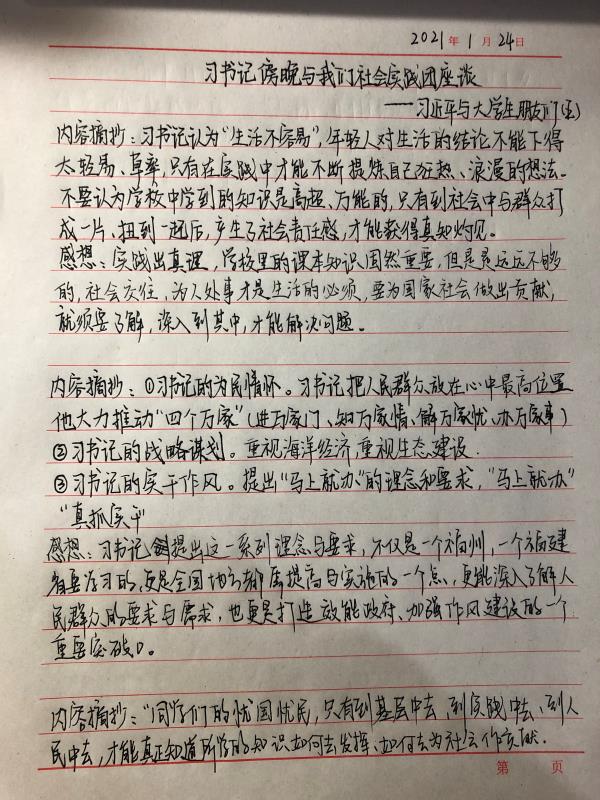 2021年 1月 24日
习书记傍晚与我们社会实践团座谈
——习近平与大学生朋友们(五)
内容摘抄:习书记认为“生活不容易”,年轻人对生活的结论不能下得
太轻易、草率,只有在实践中才能不断提炼自己狂热、浪漫的想法.
不要认为学校中学到的知识是高超、万能的,只有到社会中与群众打
成一片、扭到一起后,产生了社会责任感,才能获得真知灼见。
感想:实践出真理,学校里的课本知识固然重要,但是是远远不够
的,社会交往,为人处事才是生活的必须,要为国家社会做出贡献,
就须要了解,深入到其中,才能解决问题。
内容摘抄:①习书记的为民情怀。习书记把人民群众放在心中最高位置
他大力推动“四个万家”(进万家门、知万家情、解万家忧、办万家事)
②习书记的战略谋划。重视海洋经济,重视生态建设.
③习书记的实干作风。提出“马上就办”的理念和要求,“马上就办”
“真抓实干”
感想:习书记提出这一系列理念与要求,不仅是一个福州,一个福建
省要学习的,更是全国地方都需提高与实施的一个点,更能深入了解人
民群众的要求与需求,也更是打造效能政府、加强作风建设的一个
重要突破口。
内容摘抄:“同学们的忧国忧民,只有到基层中去、到实践中去、到人
民中去,才能真正知道所学的知识如何去发挥、如何去为社会作贡献.
第 页